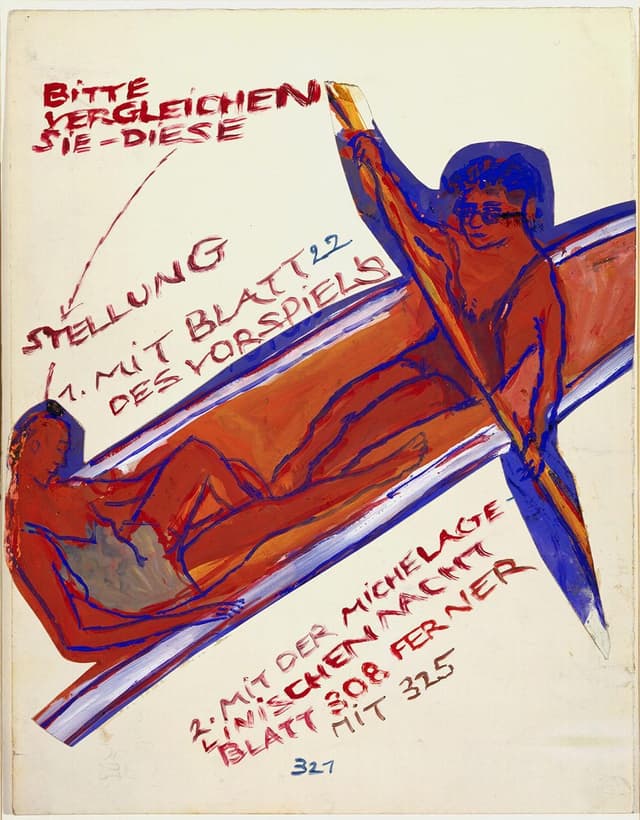 BITTE
VERGLEICHEN
SIE-DIESE
STELLUNG
1. MIT BLATT 22
DES VORSPIELS
2. MIT DER MICHELAGE
LINISCHEN NACHT
BLATT 308 FERNER
MIT 325
321